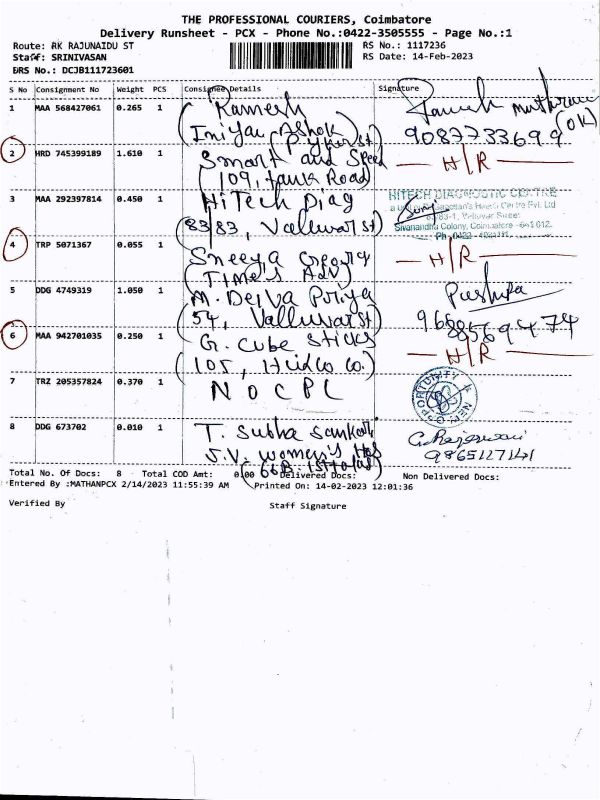 THE PROFESSIONAL COURIERS, Coimbatore
Delivery Runsheet - PCX - Phone No.:0422-3505555 - Page No.:1
Route: RK RAJUNAIDU ST RS No.: 1117236
Staff: SRINIVASAN RS Date: 14-Feb-2023
DRS No.: DCJB111723601
S No Consignment No Weight PCS Consignee Details Signature
1 MAA 568427061 0.265 1 Ramesh
(Iniyan Ashok
9087733699 (OK)
2 HRD 745399189 1.610 1 Smart and Speed H/R
(109, Tank Road)
3 MAA 292397814 0.450 1 HiTech Diag HITECH DIAGNOSTIC CENTRE
(8383, Valluvar st) Sivanandha Colony, Coimbatore -641 012.
4 TRP 5071367 0.055 1 H/R
5 DDG 4749319 1.050 1 M. Deiva Priya Pushpa
(54, Valluvar st)
6 MAA 942701035 0.250 1 G. Cube Sticks H/R
(105, Hudco Co.)
7 TRZ 205357824 0.370 1 NOCPL
8 DDG 673702 0.010 1 T. Subha Sankari
J.V. women's Hos 9865127141
Total No. Of Docs: 8 Total COD Amt: 0.00 Delivered Docs: Non Delivered Docs:
Entered By :MATHANPCX 2/14/2023 11:55:39 AM Printed On: 14-02-2023 12:01:36
Verified By Staff Signature